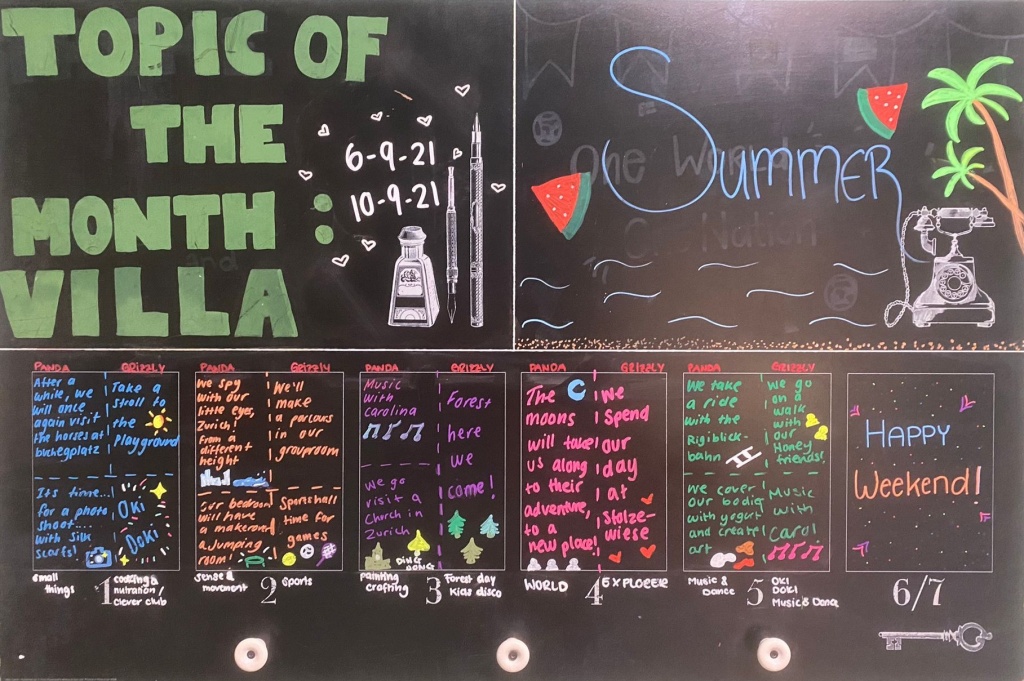 TOPIC OF
THE
MONTH :
VILLA
6-9-21
10-9-21
and
SUMMER
One World
Nation
PANDA
After a
while, we
will once
again visit
the horses at
buchegplatz
It's time...!
for a photo
shoot....
with silk
scarfs!
small
things
GRIZZLY
Take a
stroll to
the
playground
Oki
Doki
cooking &
nutration/
clever club
1
PANDA
We spy
with our
little eyes,
Zurich!
From a
different
height
Our bedroom
will have
a makeover
a Jumping
room!
sense &
movement
GRIZZLY
We'll
make
a parcours
in our
grouproom
Sportshall
time for
games
Sports
2
PANDA
Music
with
Carolina
We go
visit a
Church in
Zurich
DING
DONG
painting
crafting
GRIZZLY
Forest
here
we
come!
Forest day
Kids disco
3
PANDA
The
moons
will take
us along
to their
adventure,
to a
new place!
WORLD
GRIZZLY
We
spend
our
day
at
Stolze-
wiese
EXPLOERE
4
PANDA
We take
a ride
with the
Rigiblick-
bahn
We cover
our bodies
with yogurt
and create
art
Music &
Dance
GRIZZLY
We go
on a
walk
with
our
Honey
friends!
Music
with
Carol
OKI
DOKI
Music & Dance
5
HAPPY
Weekend!
6/7